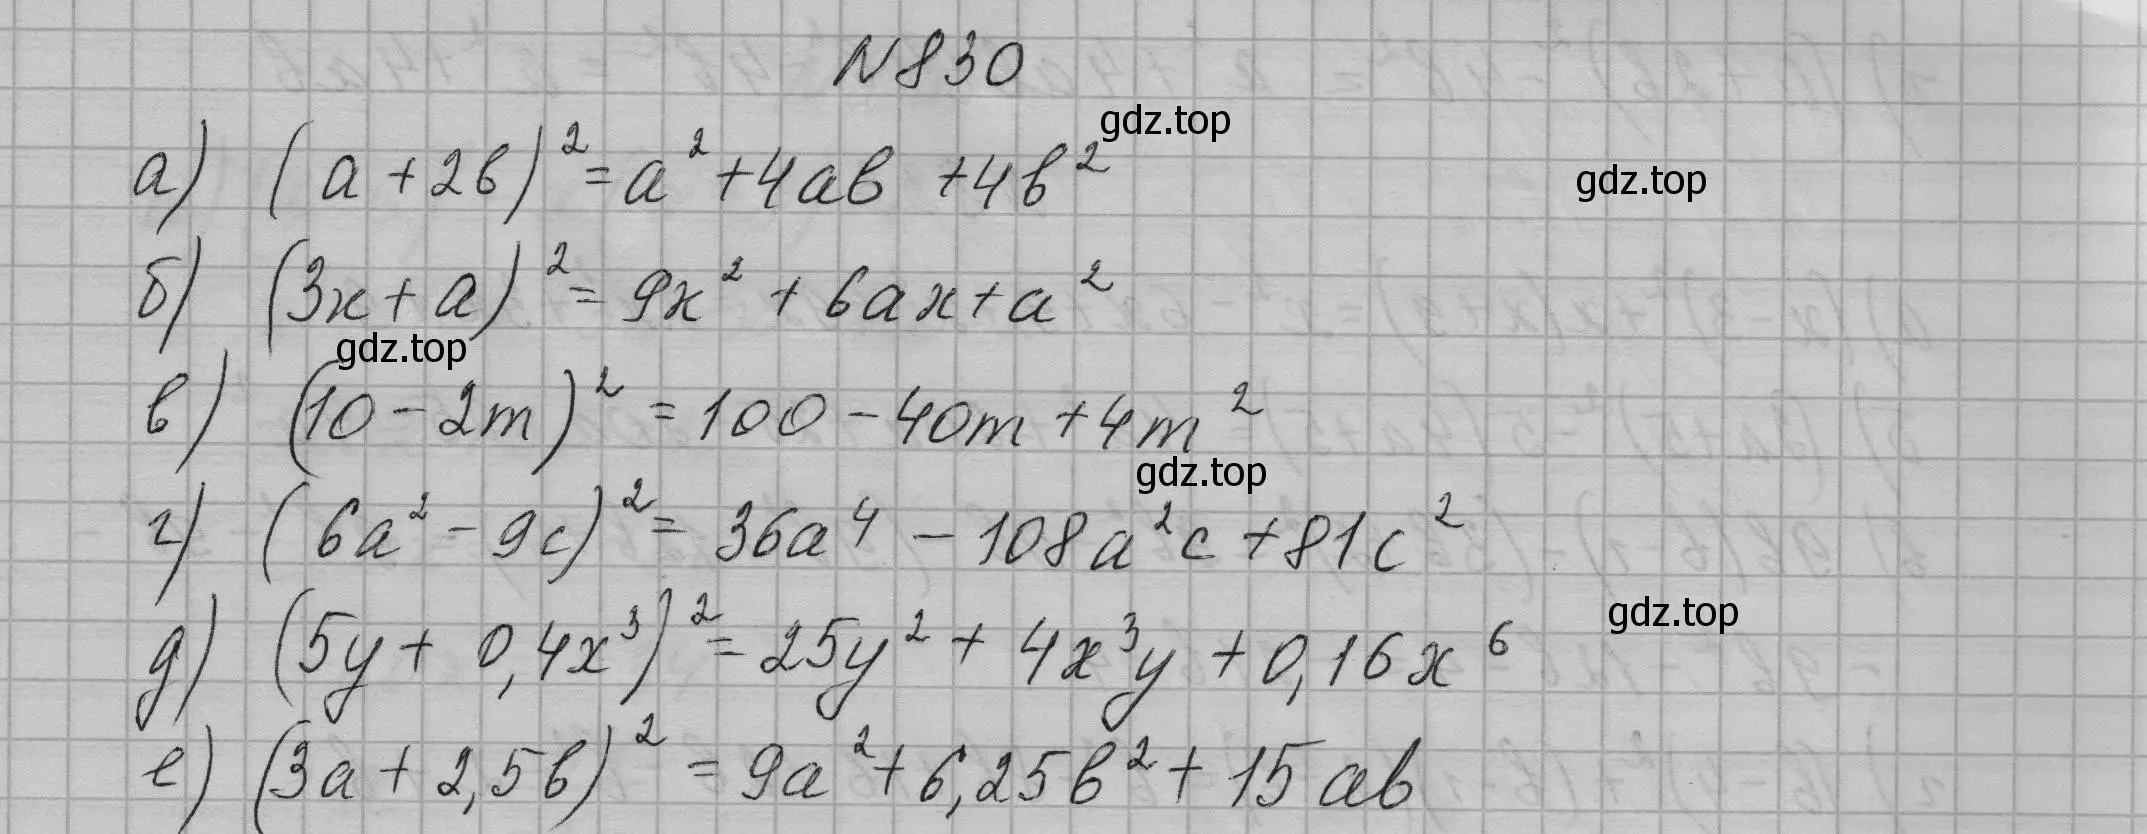 N830
gdz.top
а) (a+2b)²=a²+4ab+4b²
gdz.top
б) (3x+a)²=9x²+6ax+a²
gdz.top
в) (10-2m)²=100-40m+4m²
gdz.top
г) (6a²-9c)²=36a⁴-108a²c+81c²
gdz.top
д) (5y+0,4x³)²=25y²+4x³y+0,16x⁶
е) (3a+2,5b)²=9a²+6,25b²+15ab